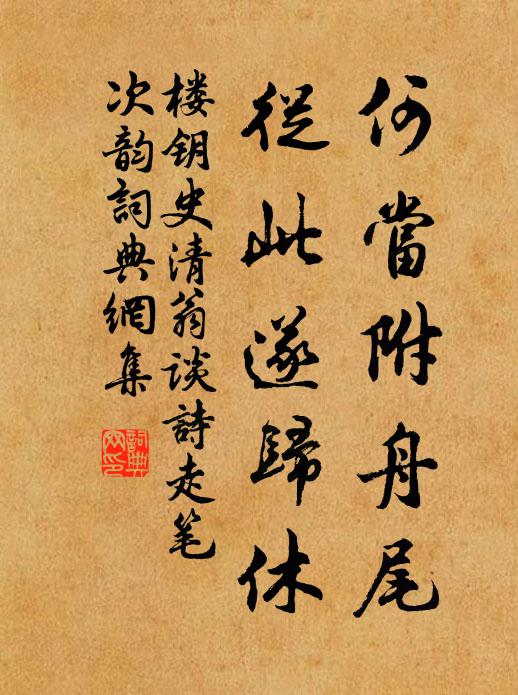 何當附舟尾
從此遂歸休
楼钥史清翁谈詩走笔
次韵詞典網集
詞典网印